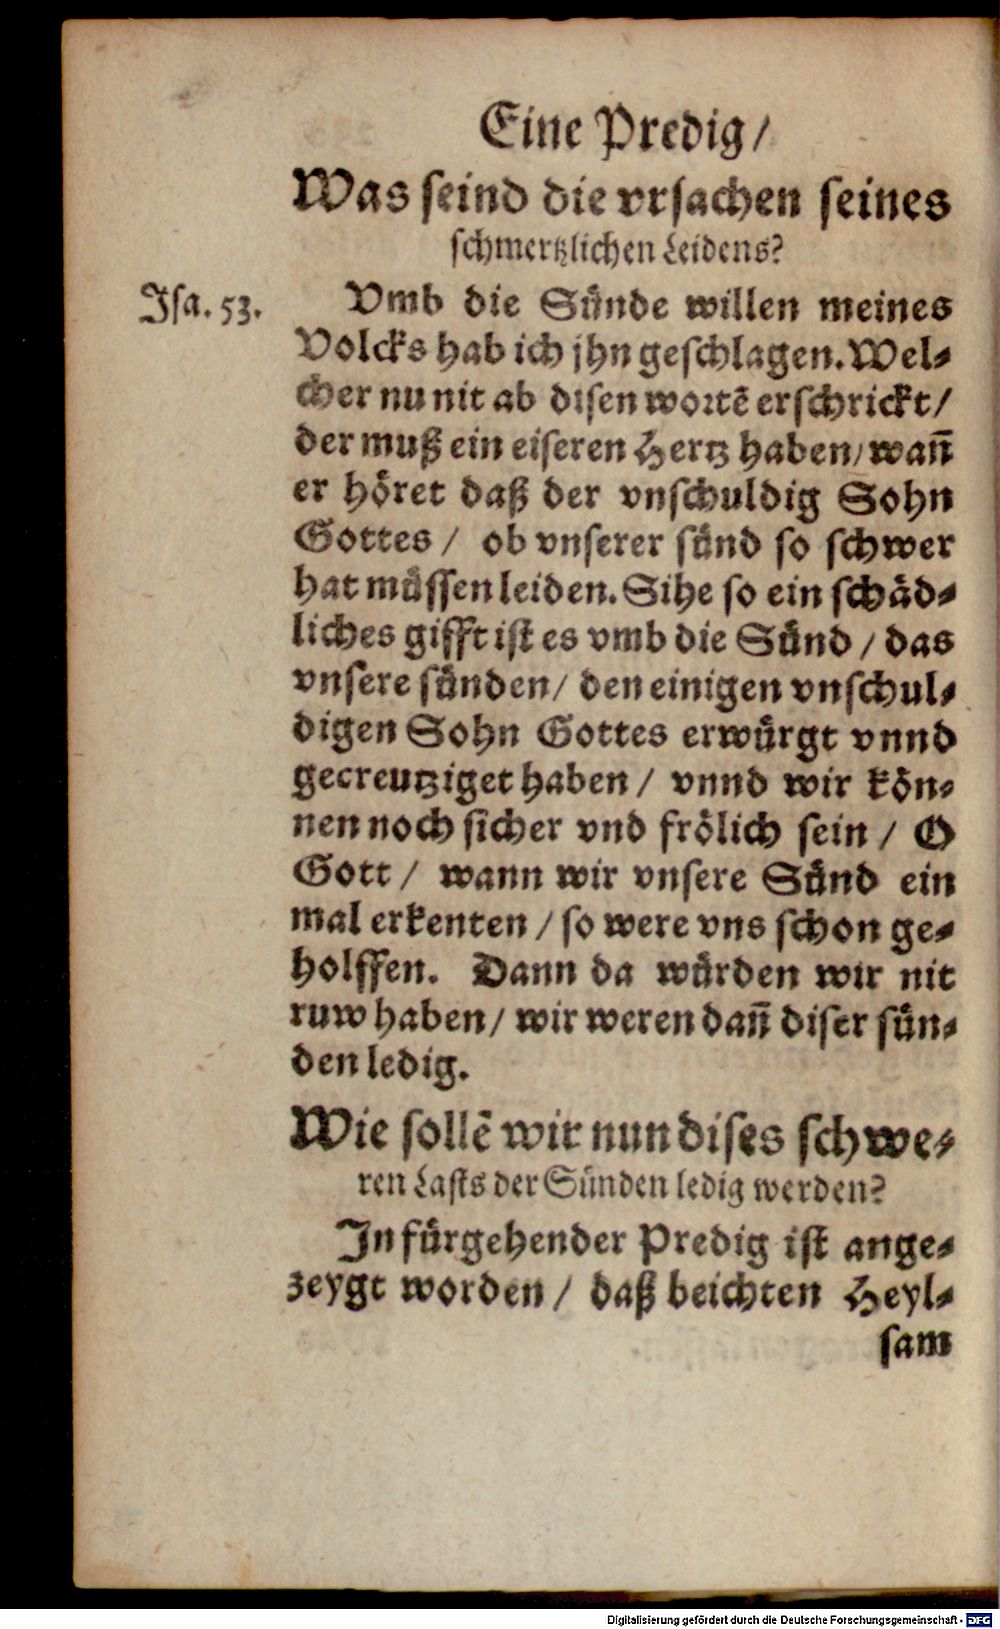 Eine Predig/
Was ſeind die vrſachen ſeines
ſchmertzlichen Leidens?
Iſa. 53.
Vmb die Sünde willen meines
Volcks hab ich jhn geſchlagen. Wel⸗
cher nu nit ab diſen wortē erſchrickt/
der muß ein eiſeren Hertz haben/ wañ
er höret daß der vnſchuldig Sohn
Gottes / ob vnſerer ſünd ſo ſchwer
hat müſſen leiden. Sihe ſo ein ſchäd⸗
liches gifft iſt es vmb die Sünd / das
vnſere ſünden/ den einigen vnſchul⸗
digen Sohn Gottes erwürgt vnnd
gecreutziget haben / vnnd wir kön⸗
nen noch ſicher vnd frölich ſein / O
Gott / wann wir vnſere Sünd ein
mal erkenten / ſo were vns ſchon ge⸗
holffen. Dann da würden wir nit
ruw haben/ wir weren dañ diſer ſün⸗
den ledig.
Wie ſollē wir nun diſes ſchwe⸗
ren Laſts der Sünden ledig werden?
In fürgehender Predig iſt ange⸗
zeygt worden / daß beichten Heyl⸗
ſam
Digitalisierung gefördert durch die Deutsche Forschungsgemeinschaft - DFG